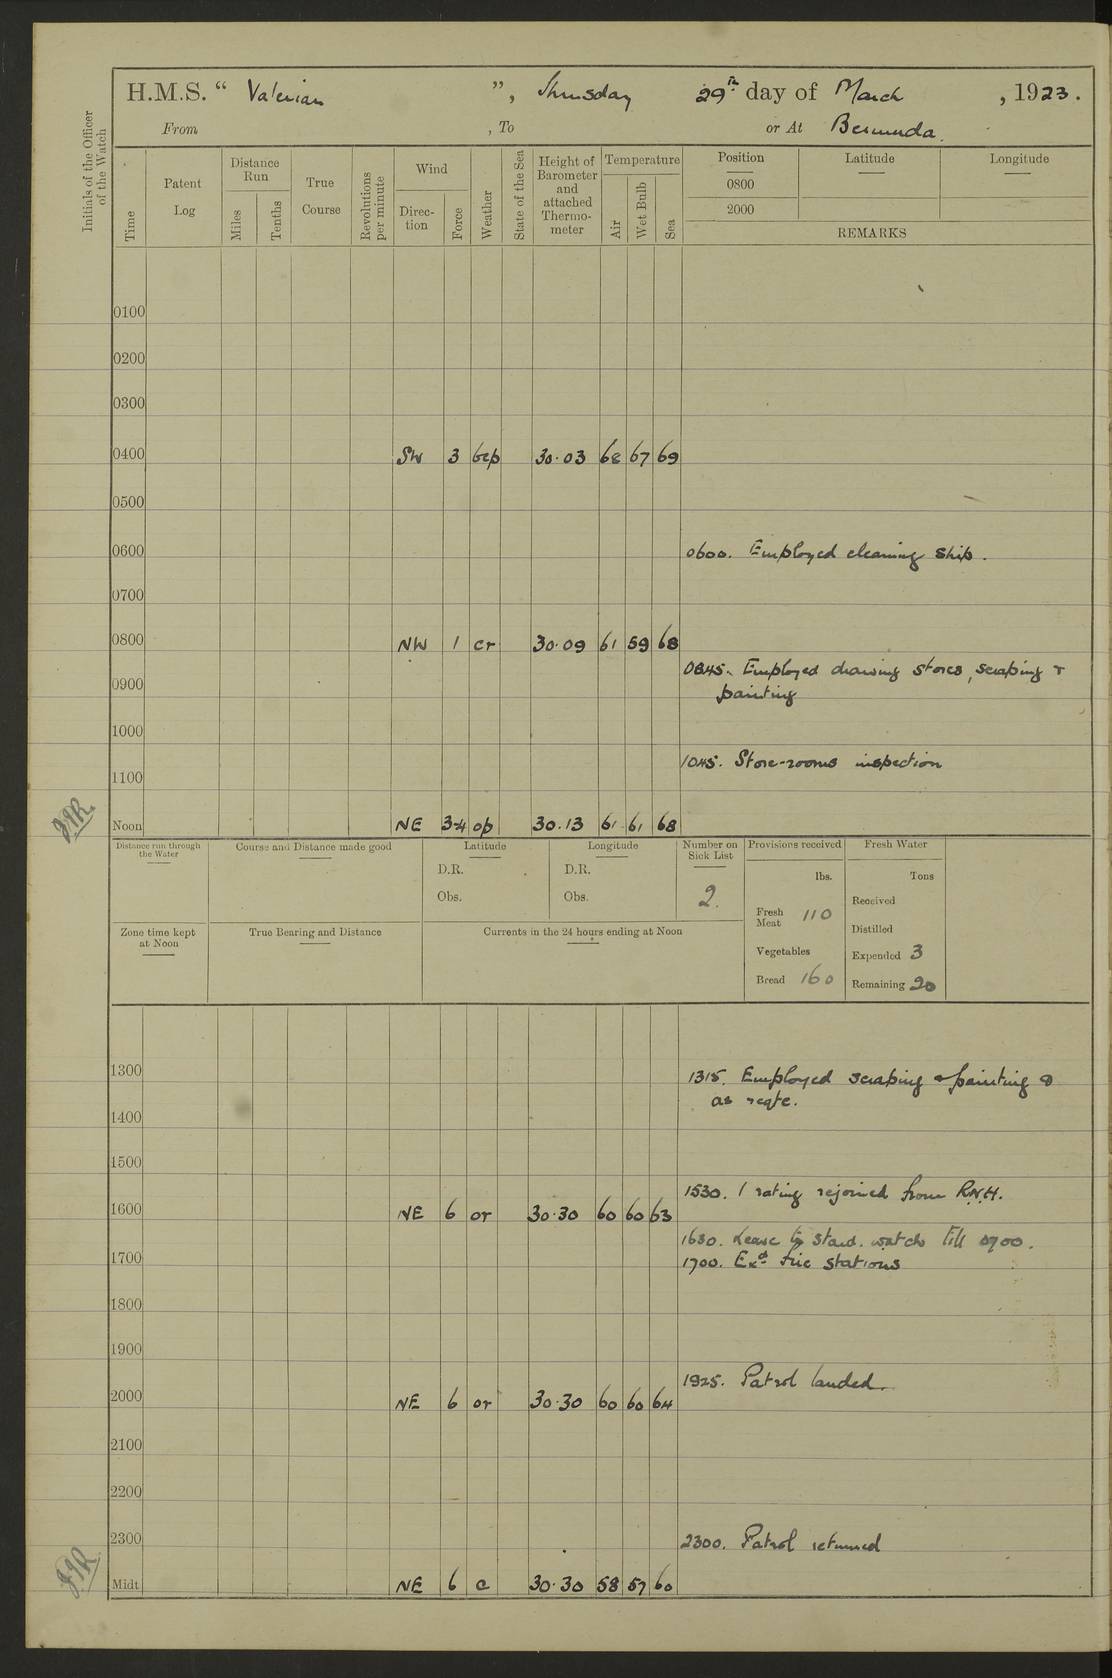 H.M.S. “ Valerian ”, Thursday 29th day of March , 1923.
From , To or At Bermuda.
Initials of the Officer of the Watch
Time
Patent Log
Distance Run
Miles
Tenths
True Course
Revolutions per minute
Wind
Direc-tion
Force
Weather
State of the Sea
Height of Barometer and attached Thermo-meter
Temperature
Air
Wet Bulb
Sea
Position
0800
2000
Latitude
Longitude
REMARKS
0100
0200
0300
0400 SW 3 bcp 30.03 68 67 69
0500
0600 0600. Employed cleaning ship.
0700
0800 NW 1 cr 30.09 61 59 68
0845. Employed drawing stores, scraping &
0900 painting
1000
1045. Store-rooms inspection
1100
Noon NE 3-4 op 30.13 61 61 68
Distance run through the Water
Course and Distance made good
Latitude
D.R.
Obs.
Longitude
D.R.
Obs.
Number on Sick List
2.
Provisions received
lbs.
Fresh Meat 110
Vegetables
Bread 160
Fresh Water
Tons
Received
Distilled
Expended 3
Remaining 20
Zone time kept at Noon
True Bearing and Distance
Currents in the 24 hours ending at Noon
1300 1315. Employed scraping & painting &
as reqte.
1400
1500
1530. 1 rating rejoined from R.N.H.
1600 NE 6 or 30.30 60 60 63
1630. Leave to starbd. watch till 0700.
1700 1700. Exd fire stations
1800
1900
1925. Patrol landed.
2000 NE 6 or 30.30 60 60 64
2100
2200
2300 2300. Patrol returned
Midt NE 6 c 30.30 58 57 60